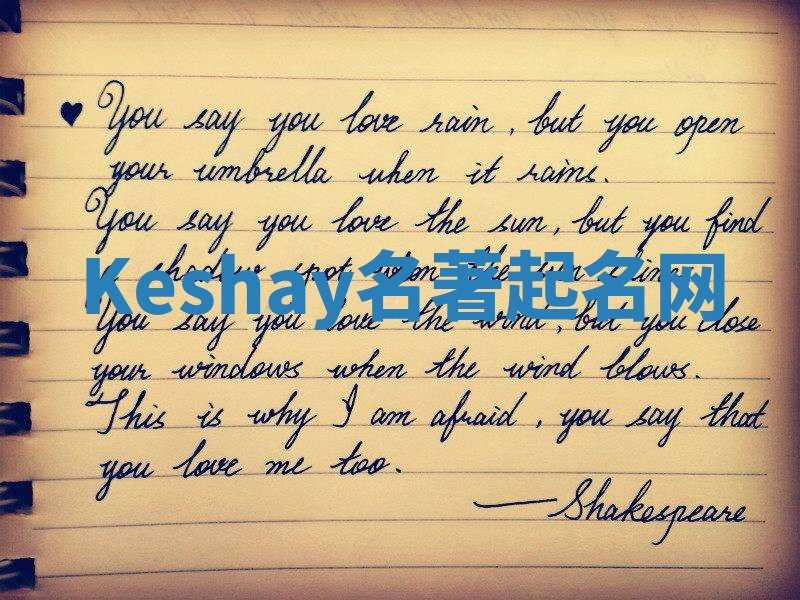 ♥ You say you love rain, but you open
your umbrella when it rains.
You say you love the sun, but you find
a shadow spot when the sun shines.
Keshay名著起名网
You say you love the wind, but you close
your windows when the wind blows.
This is why I am afraid, you say that
you love me too.
— Shakespeare